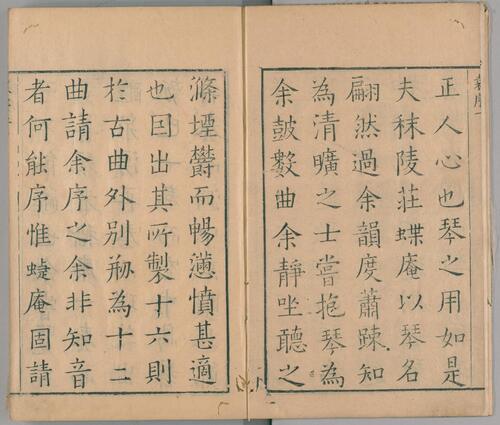 正人心也琴之用如是
夫秣陵莊蝶庵以琴名
翩然過余韻度蕭踈知
為清曠之士嘗抱琴為
余鼓數曲余靜坐聽之
滌堙欝而暢懣憤甚適
也因出其所製十六則
於古曲外别剏為十二
曲請余序之余非知音
者何能序惟蜨庵固請